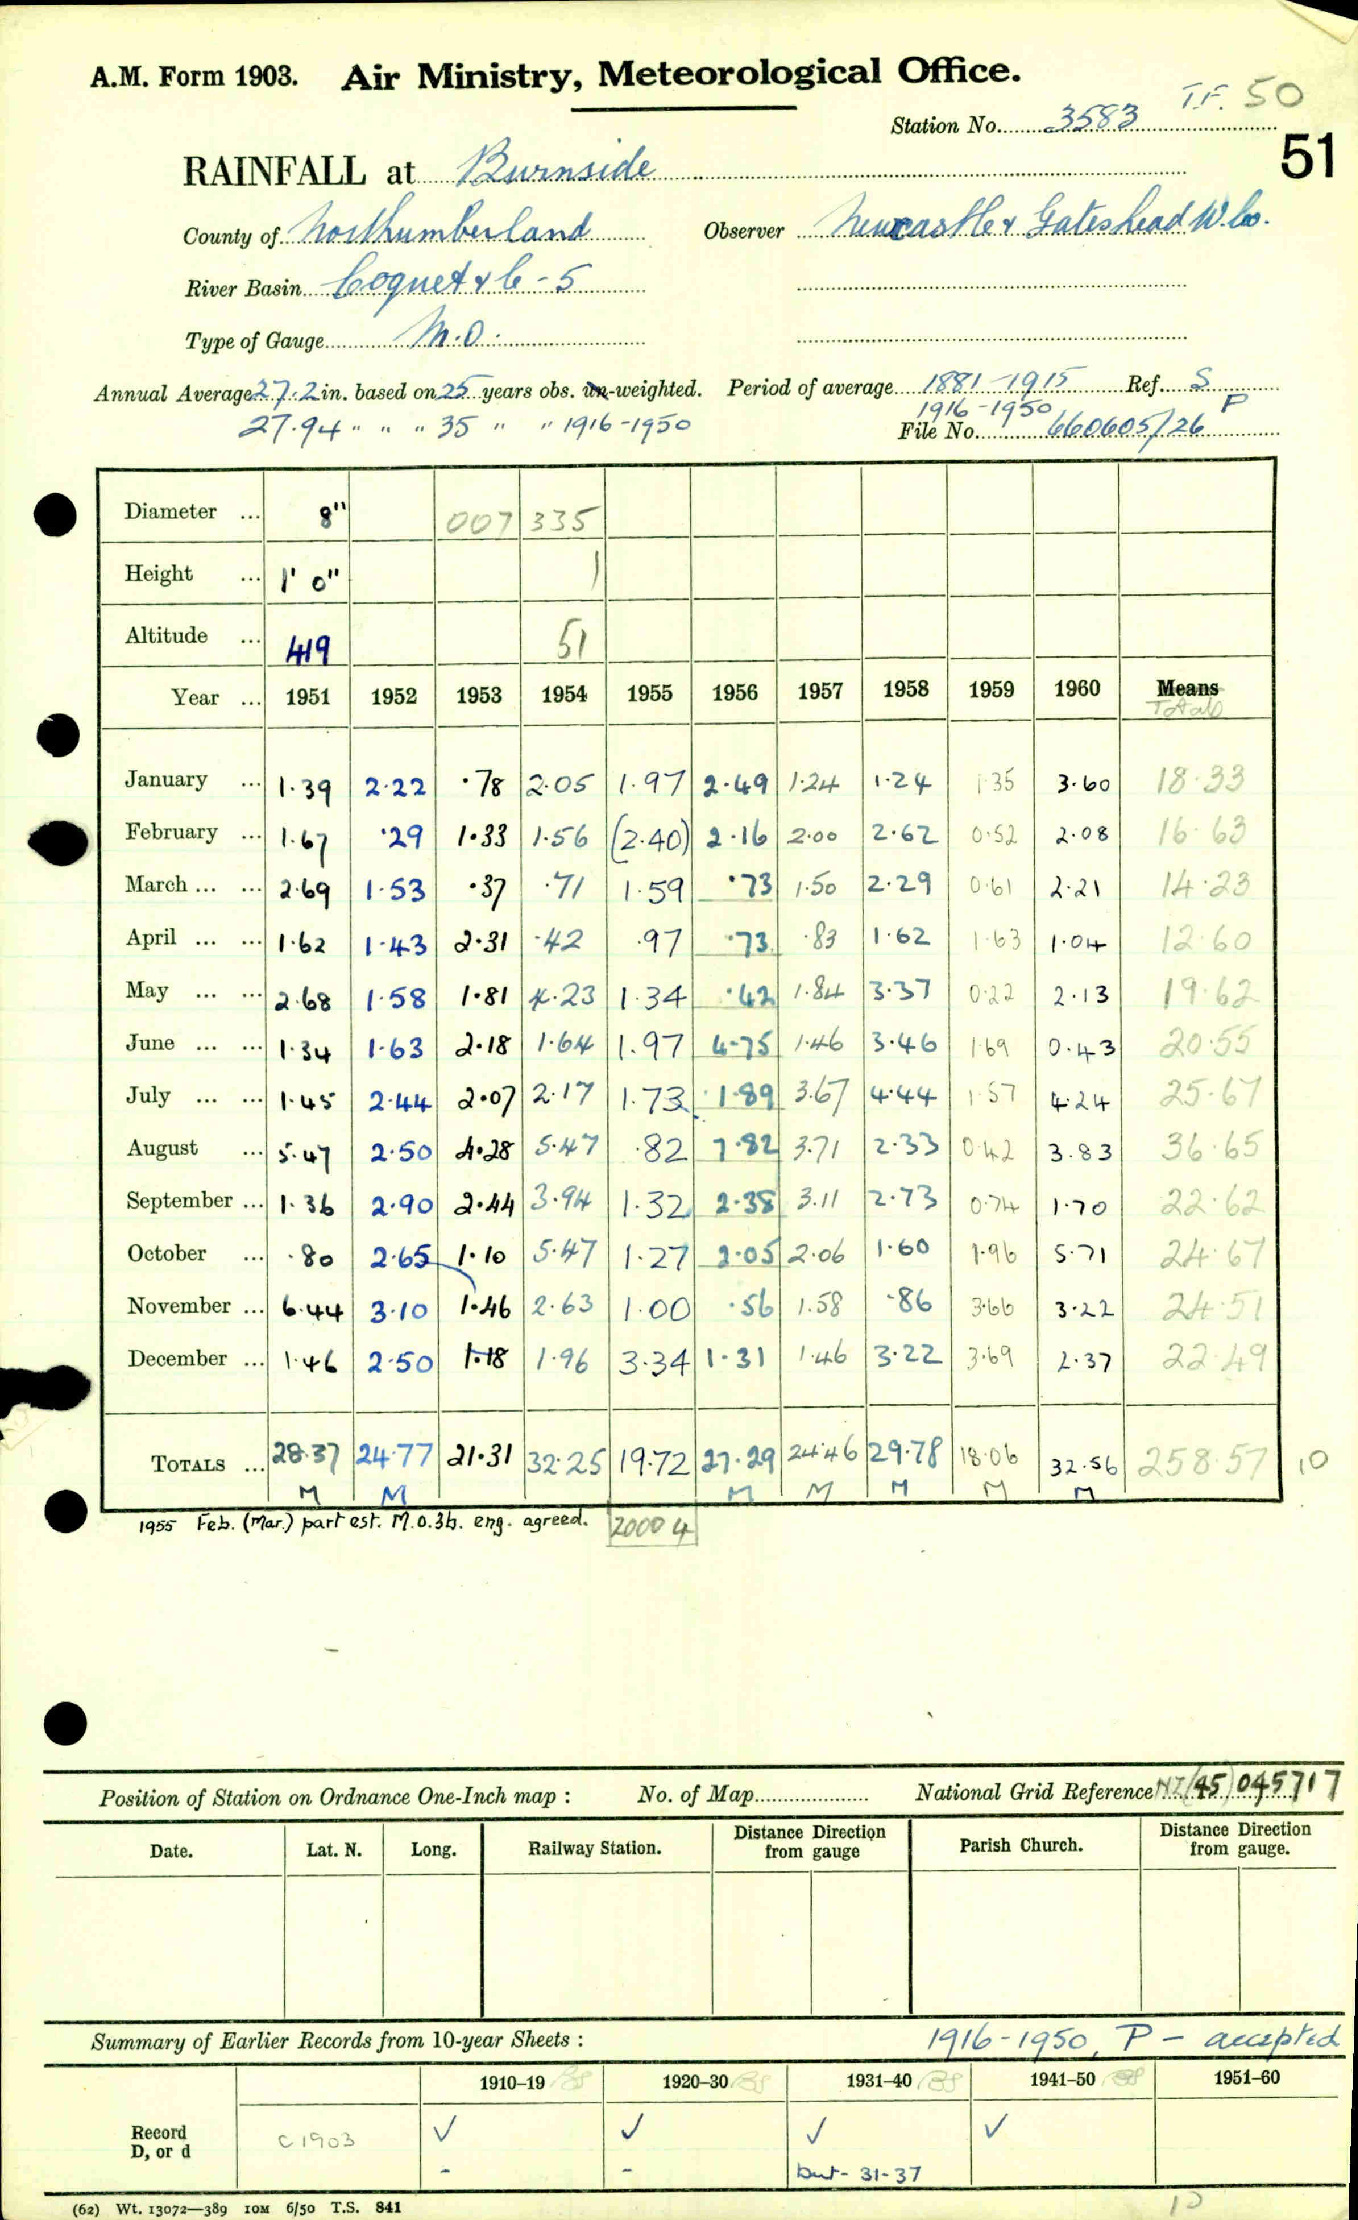 A.M. Form 1903. Air Ministry, Meteorological Office.
T.F. 50
Station No. 3583
51
RAINFALL at Burnside
County of Northumberland Observer Newcastle & Gateshead W. Co.
River Basin Coquet & C - 5
Type of Gauge M.O.
Annual Average 27.2 in. based on 25 years obs. un-weighted. Period of average 1881-1915 Ref. S
27.94 " " " 35 " " 1916-1950 1916-1950 P
File No. 660605/26
Diameter ... 8" 007 335
Height ... 1' 0" 1
Altitude ... 419 51
Year ... 1951 1952 1953 1954 1955 1956 1957 1958 1959 1960 Means
Totals
January ... 1.39 2.22 .78 2.05 1.97 2.49 1.24 1.24 1.35 3.60 18.33
February ... 1.67 .29 1.33 1.56 (2.40) 2.16 2.00 2.62 0.52 2.08 16.63
March ... ... 2.69 1.53 .37 .71 1.59 .73 1.50 2.29 0.61 2.21 14.23
April ... ... 1.62 1.43 2.31 .42 .97 .73 .83 1.62 1.63 1.04 12.60
May ... ... 2.68 1.58 1.81 4.23 1.34 .42 1.84 3.37 0.22 2.13 19.62
June ... ... 1.34 1.63 2.18 1.64 1.97 4.75 1.46 3.46 1.69 0.43 20.55
July ... ... 1.45 2.44 2.07 2.17 1.73 1.89 3.67 4.44 1.57 4.24 25.67
August ... 5.47 2.50 4.28 5.47 .82 7.82 3.71 2.33 0.42 3.83 36.65
September ... 1.36 2.90 2.44 3.94 1.32 2.38 3.11 2.73 0.74 1.70 22.62
October ... .80 2.65 1.10 5.47 1.27 2.05 2.06 1.60 1.96 5.71 24.67
November ... 6.44 3.10 1.46 2.63 1.00 .56 1.58 .86 3.66 3.22 24.51
December ... 1.46 2.50 1.18 1.96 3.34 1.31 1.46 3.22 3.69 2.37 22.49
TOTALS ... 28.37 24.77 21.31 32.25 19.72 27.29 24.46 29.78 18.06 32.56 258.57 10
M M M M M M M
1955 Feb. (Mar.) part est. M.O.3b. eng. agreed. 2000 4
Position of Station on Ordnance One-Inch map : No. of Map National Grid Reference NZ (45) 045717
Date. Lat. N. Long. Railway Station. Distance Direction from gauge Parish Church. Distance Direction from gauge.
Summary of Earlier Records from 10-year Sheets : 1916-1950, P - accepted
1910-19 1920-30 1931-40 1941-50 1951-60
Record D, or d C 1903 ✓ ✓ ✓ ✓
- - but - 31-37
(62) Wt. 13072—389 10M 6/50 T.S. 841
10